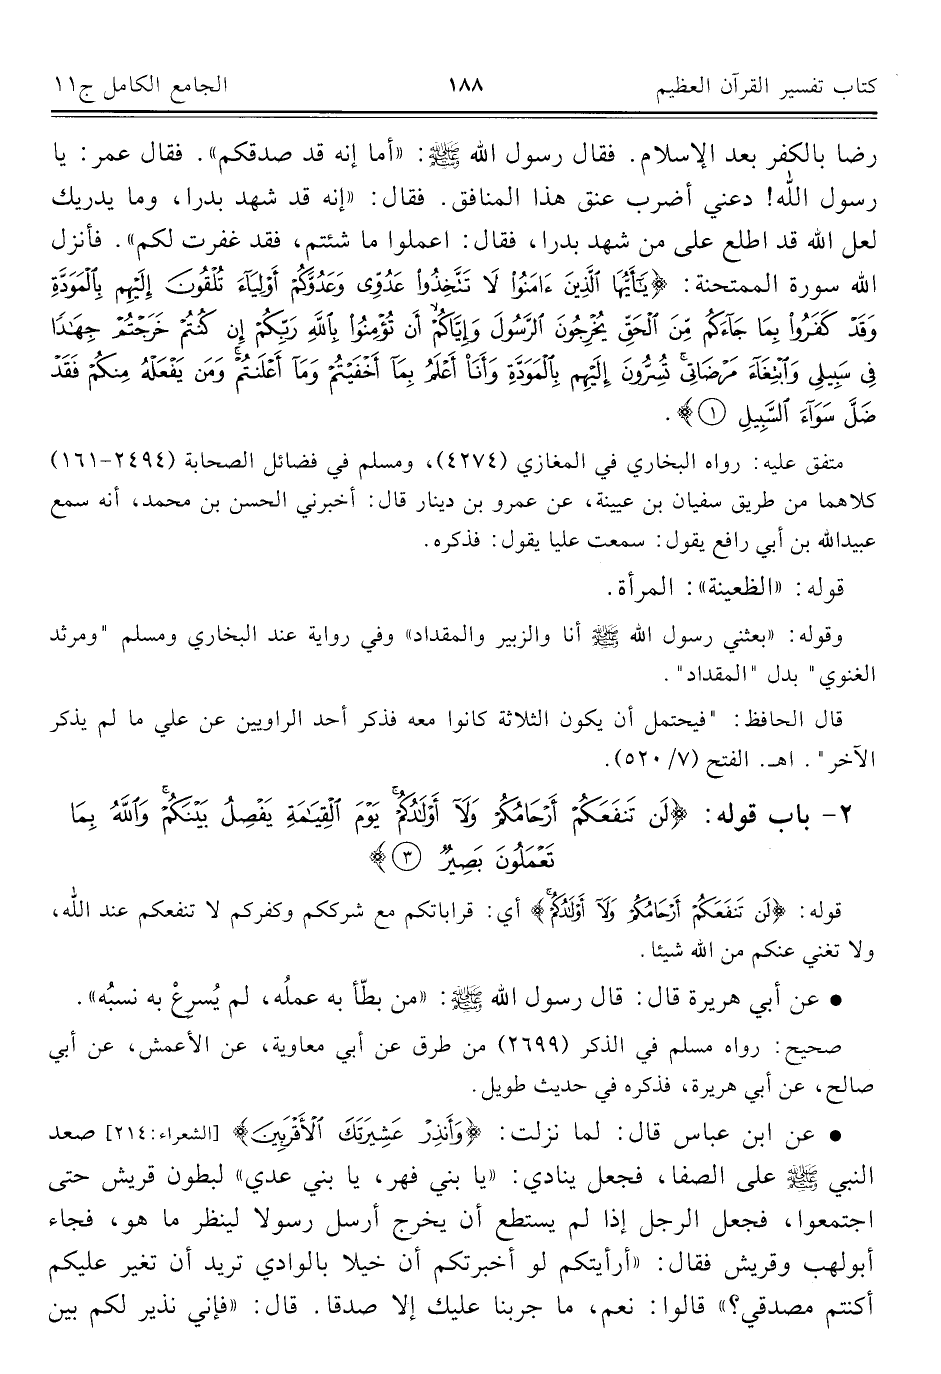 كتاب تفسير القرآن العظيم ١٨٨ الجامع الكامل ج١١
رضا بالكفر بعد الإسلام. فقال رسول الله ﷺ: «أما إنه قد صدقكم». فقال عمر: يا
رسول الله! دعني أضرب عنق هذا المنافق. فقال: «إنه قد شهد بدرا، وما يدريك
لعل الله قد اطلع على من شهد بدرا، فقال: اعملوا ما شئتم، فقد غفرت لكم». فأنزل
الله سورة الممتحنة: ﴿يَٰٓأَيُّهَا ٱلَّذِينَ ءَامَنُوا۟ لَا تَتَّخِذُوا۟ عَدُوِّى وَعَدُوَّكُمْ أَوْلِيَآءَ تُلْقُونَ إِلَيْهِم بِٱلْمَوَدَّةِ
وَقَدْ كَفَرُوا۟ بِمَا جَآءَكُم مِّنَ ٱلْحَقِّ يُخْرِجُونَ ٱلرَّسُولَ وَإِيَّاكُمْ ۙ أَن تُؤْمِنُوا۟ بِٱللَّهِ رَبِّكُمْ إِن كُنتُمْ خَرَجْتُمْ جِهَٰدًا
فِى سَبِيلِى وَٱبْتِغَآءَ مَرْضَاتِى ۚ تُسِرُّونَ إِلَيْهِم بِٱلْمَوَدَّةِ وَأَنَا۠ أَعْلَمُ بِمَآ أَخْفَيْتُمْ وَمَآ أَعْلَنتُمْ ۚ وَمَن يَفْعَلْهُ مِنكُمْ فَقَدْ
ضَلَّ سَوَآءَ ٱلسَّبِيلِ ١﴾.
متفق عليه: رواه البخاري في المغازي (٤٢٧٤)، ومسلم في فضائل الصحابة (٢٤٩٤-١٦١)
كلاهما من طريق سفيان بن عيينة، عن عمرو بن دينار قال: أخبرني الحسن بن محمد، أنه سمع
عبيدالله بن أبي رافع يقول: سمعت عليا يقول: فذكره.
قوله: «الظعينة»: المرأة.
وقوله: «بعثني رسول الله ﷺ أنا والزبير والمقداد» وفي رواية عند البخاري ومسلم "ومرثد
الغنوي" بدل "المقداد".
قال الحافظ: "فيحتمل أن يكون الثلاثة كانوا معه فذكر أحد الراويين عن علي ما لم يذكر
الآخر". اهـ. الفتح (٧/ ٥٢٠).
٢- باب قوله: ﴿لَن تَنفَعَكُمْ أَرْحَامُكُمْ وَلَآ أَوْلَٰدُكُمْ ۚ يَوْمَ ٱلْقِيَٰمَةِ يَفْصِلُ بَيْنَكُمْ ۚ وَٱللَّهُ بِمَا
تَعْمَلُونَ بَصِيرٌ ٣﴾
قوله: ﴿لَن تَنفَعَكُمْ أَرْحَامُكُمْ وَلَآ أَوْلَٰدُكُمْ ۚ﴾ أي: قراباتكم مع شرككم وكفركم لا تنفعكم عند الله،
ولا تغني عنكم من الله شيئا.
• عن أبي هريرة قال: قال رسول الله ﷺ: «من بطّأ به عملُه، لم يُسرِعْ به نسبُه».
صحيح: رواه مسلم في الذكر (٢٦٩٩) من طرق عن أبي معاوية، عن الأعمش، عن أبي
صالح، عن أبي هريرة، فذكره في حديث طويل.
• عن ابن عباس قال: لما نزلت: ﴿وَأَنذِرْ عَشِيرَتَكَ ٱلْأَقْرَبِينَ﴾ [الشعراء: ٢١٤] صعد
النبي ﷺ على الصفا، فجعل ينادي: «يا بني فهر، يا بني عدي» لبطون قريش حتى
اجتمعوا، فجعل الرجل إذا لم يستطع أن يخرج أرسل رسولا لينظر ما هو، فجاء
أبولهب وقريش فقال: «أرأيتكم لو أخبرتكم أن خيلا بالوادي تريد أن تغير عليكم
أكنتم مصدقي؟» قالوا: نعم، ما جربنا عليك إلا صدقا. قال: «فإني نذير لكم بين